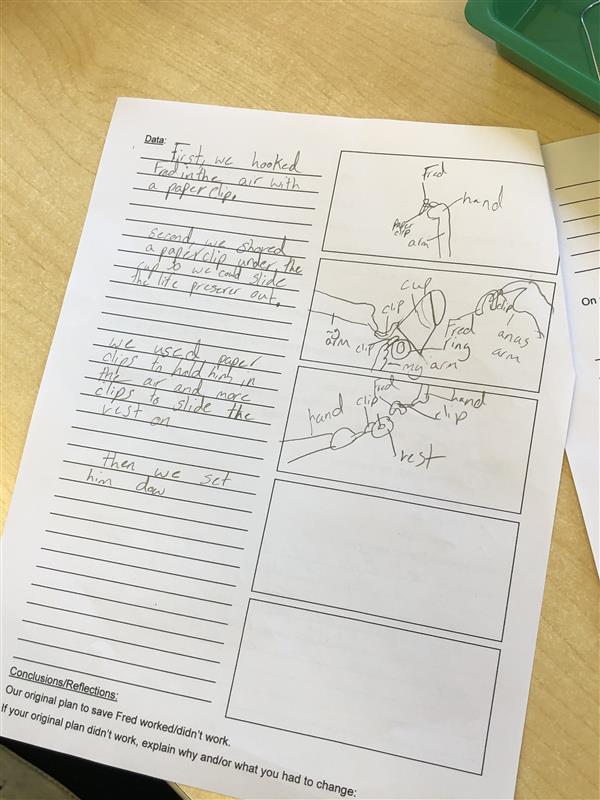 Data:
First, we hooked
Fred in the air with
a paperclip.
second, we shoved
a paperclip under the
cup so we could slide
the life preserer out.
we used paper
clips to hold him in
the air and more
clips to slide the
rest on
then we set
him dow
Fred
hand
paper
clip
arm
cup
clip
clip
my
arm
clip
Fred
ring
anas
arm
my arm
Fred
hand
clip
hand
clip
rest
On
Conclusions/Reflections:
Our original plan to save Fred worked/didn't work.
If your original plan didn't work, explain why and/or what you had to change: